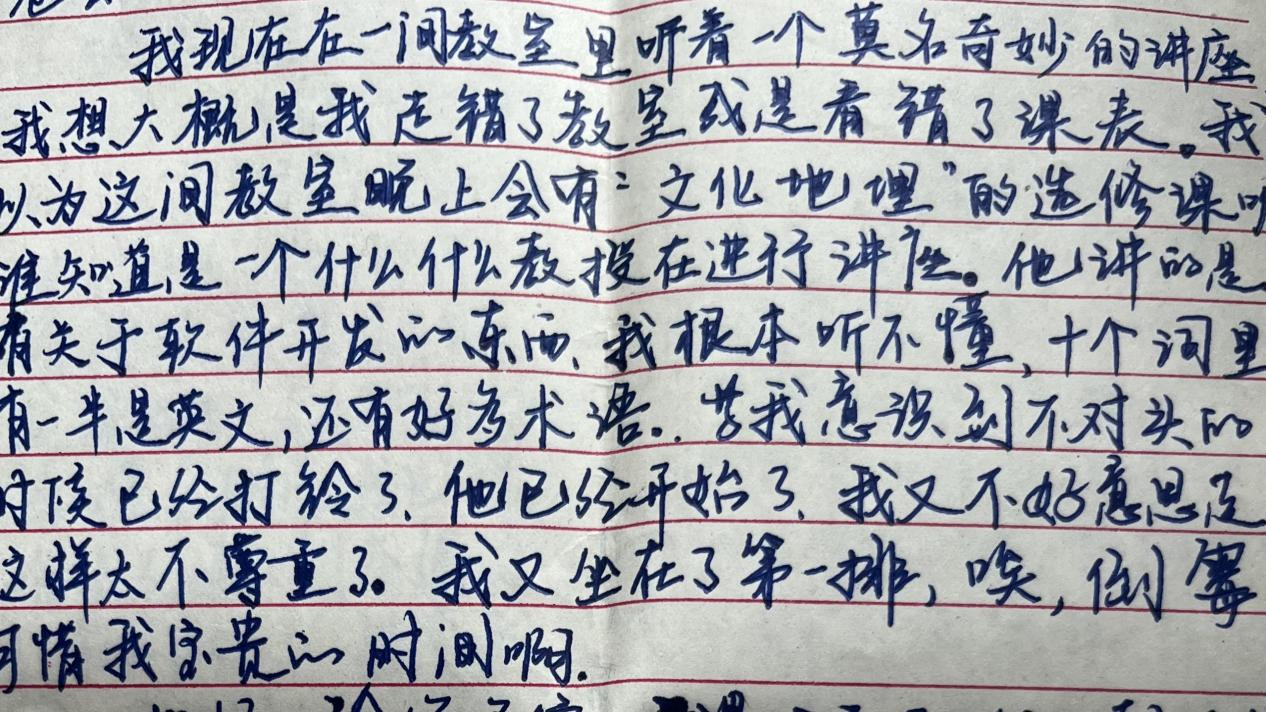 我现在在一间教室里听着一个莫名奇妙的讲座
我想大概是我走错了教室或是看错了课表。我
以为这间教室晚上会有“文化地理”的选修课呢
谁知道是一个什么什么教授在进行讲座。他讲的是
有关于软件开发的东西、我根本听不懂,十个词里
有一半是英文,还有好多术语.. 当我意识到不对头的
时候已经打铃了、他已经开始了、我又不好意思走
这样太不尊重了。我又坐在了第一排,唉,倒霉
可惜我宝贵的时间啊.